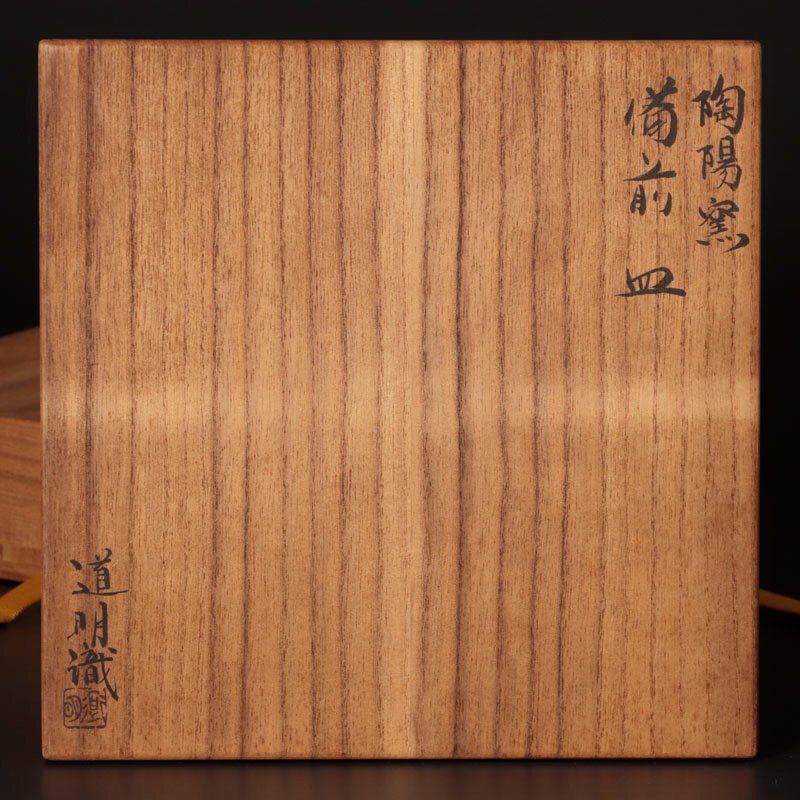 陶陽窯
備前 皿
道明識